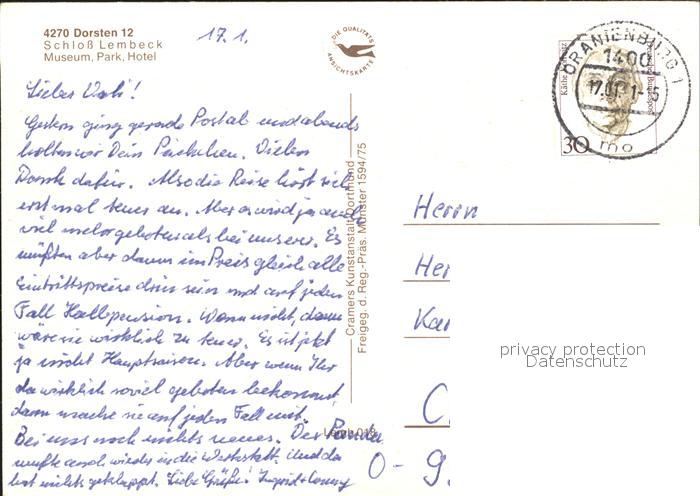 4270 Dorsten 12
Schloß Lembeck
Museum, Park, Hotel
17.1.
DIE QUALITÄTS
ANSICHTSKARTE
Lieber Vati!
Gestern ging gerade Postal und abends
holten wir Dein Päckchen. Vielen
Dank dafür. Also die Reise hört sich
erst mal teuer an. Aber es wird ja auch
viel mehr geboten als bei unserer. Es
müßten aber dann im Preis gleich alle
Eintrittspreise drin sein und auf jeden
Fall Halbpension. Wenn nicht, dann
wäre sie wirklich zu teuer. Es ist jetzt
ja nicht Hauptsaison. Aber wenn Ihr
da wirklich soviel geboten bekommt,
dann mache sie auf jeden Fall mit.
Bei uns noch nichts neues. Der
mußte auch wieder in die Werkstatt. Und da
hat nichts geklappt. Liebe Grüße! Ingrid +
Cramers Kunstanstalt Dortmund
Freigeg. d. Reg.-Präs. Münster 1594/75
ORANIENBURG 1
1400
17.01.
mo
Käthe Kollwitz
Deutsche Bundespost
30
Herrn
C
O - 9
privacy protection
Datenschutz